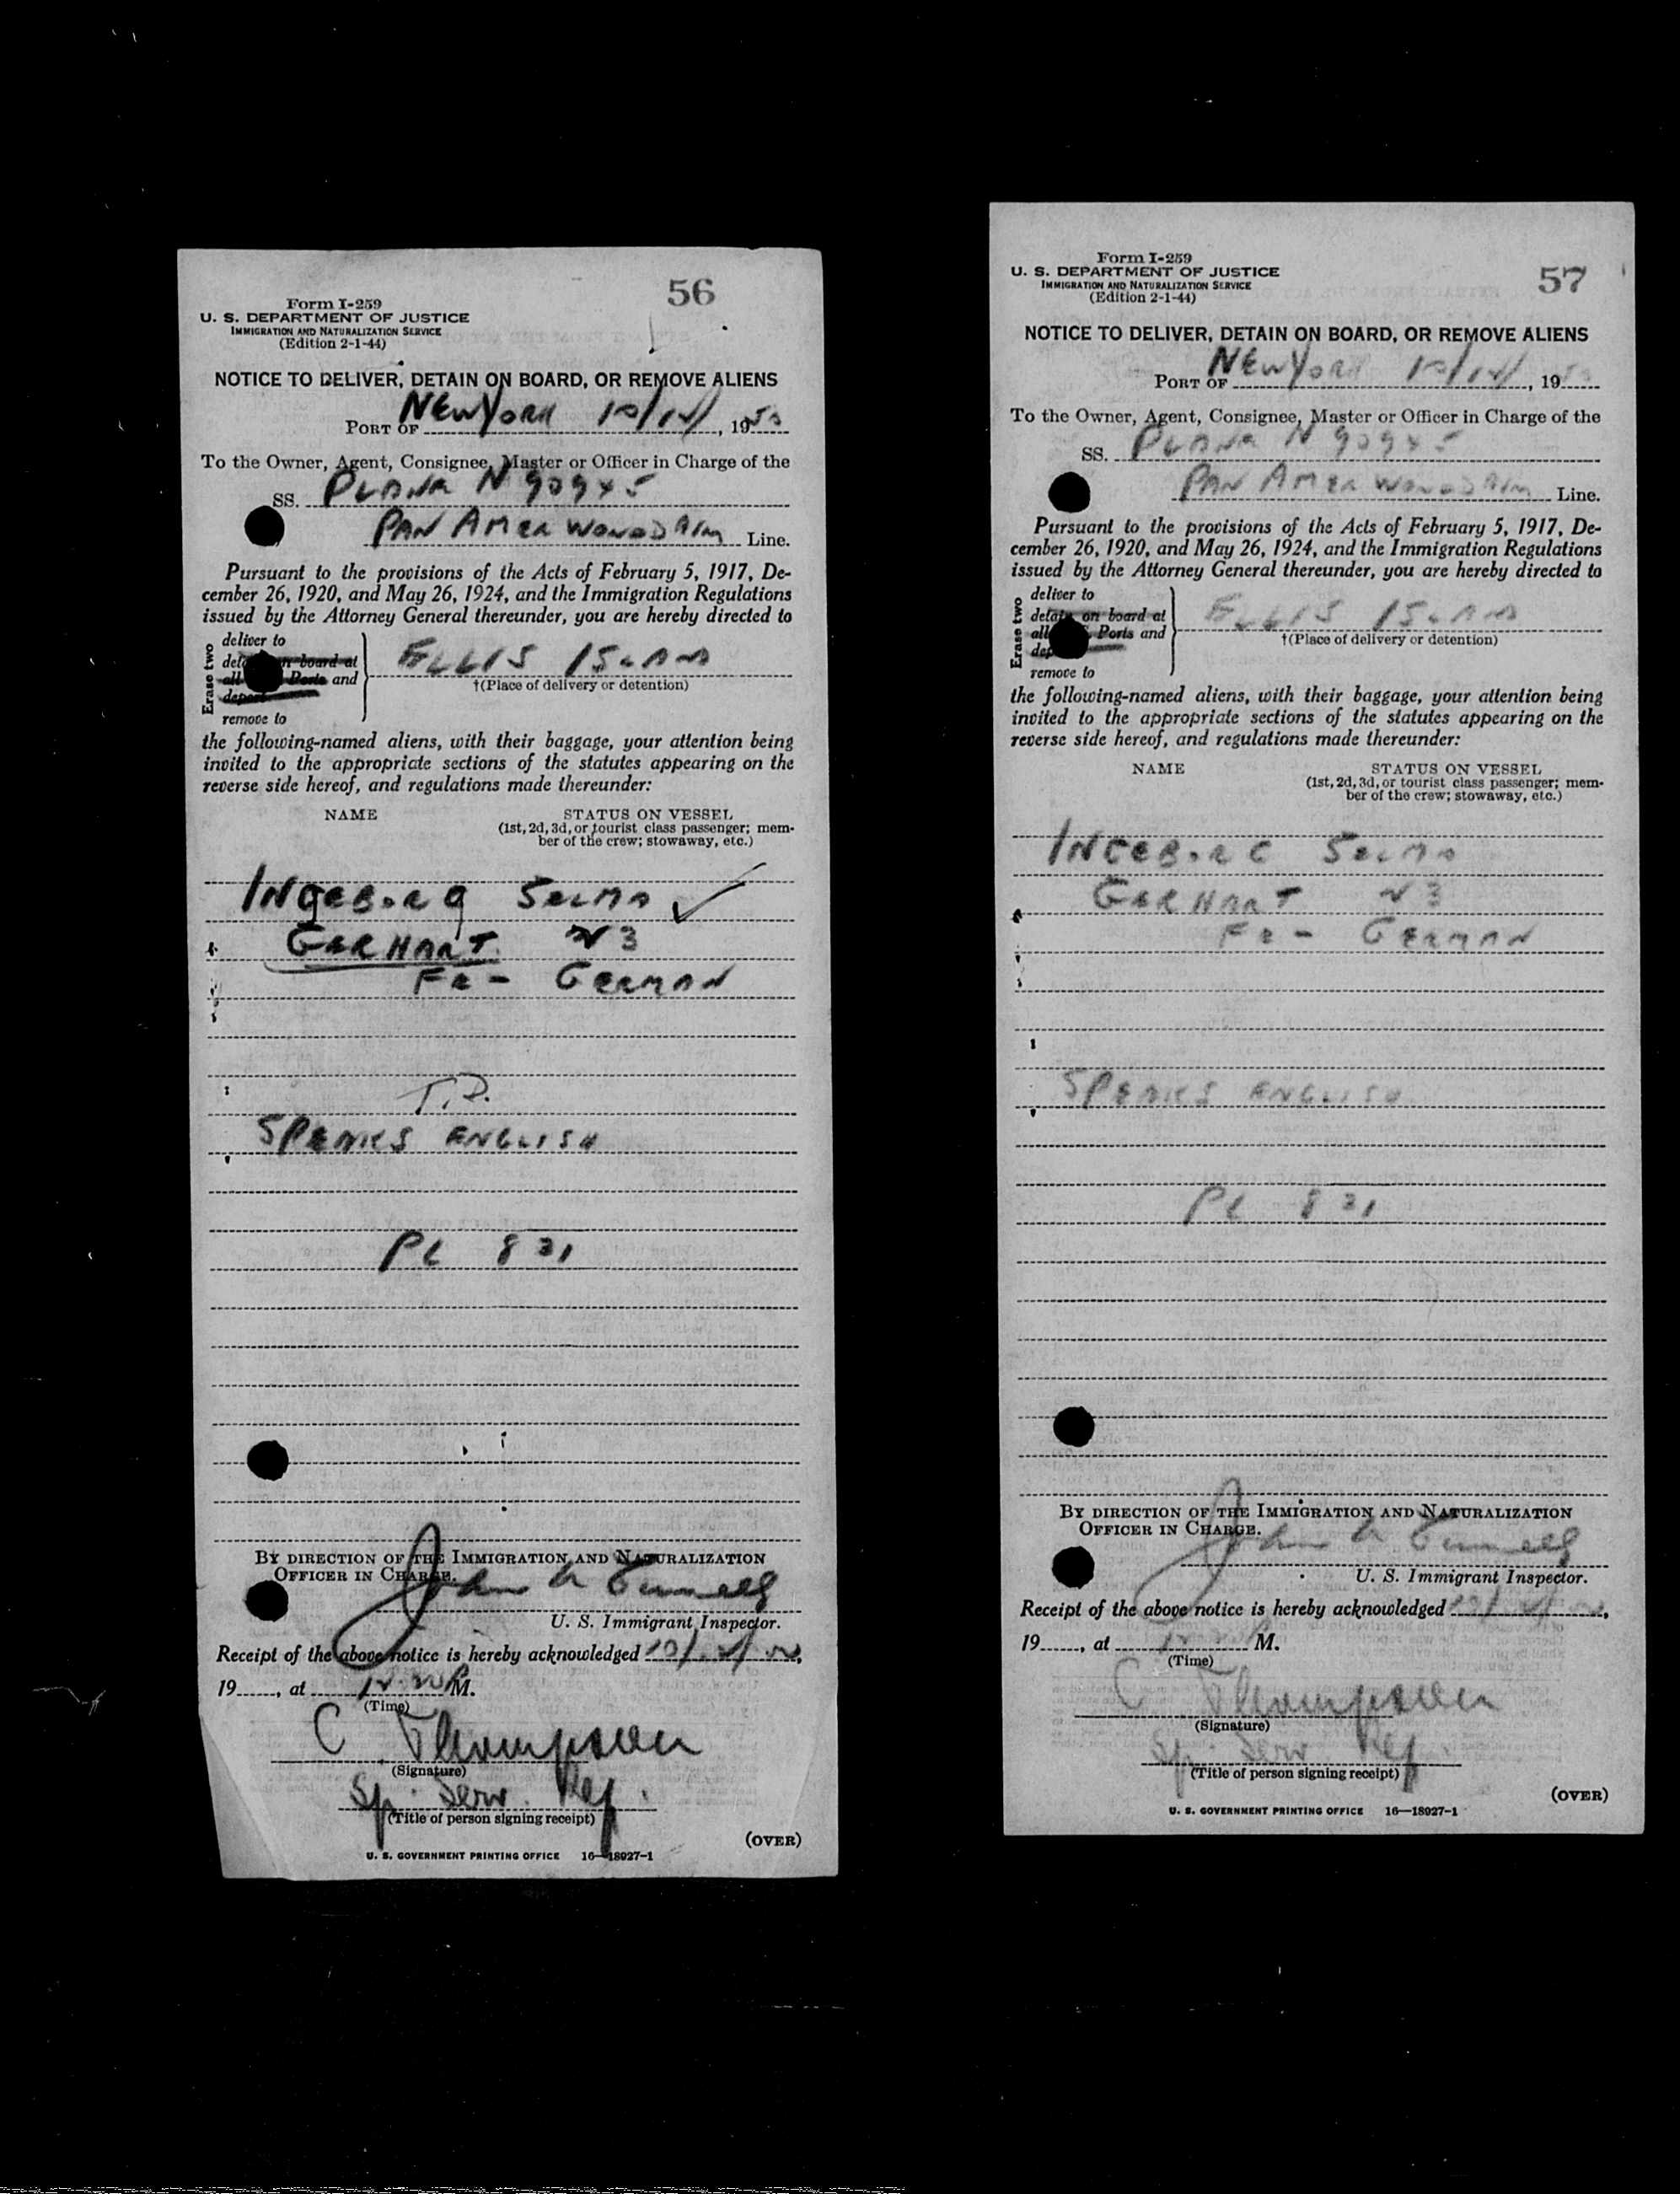 56
Form I-259
U. S. DEPARTMENT OF JUSTICE
IMMIGRATION AND NATURALIZATION SERVICE
(Edition 2-1-44)
NOTICE TO DELIVER, DETAIN ON BOARD, OR REMOVE ALIENS
PORT OF NEW YORK 10/14/, 1950
To the Owner, Agent, Consignee, Master or Officer in Charge of the
SS. PLANE N 909
PAN AMER WORLD AIR Line.
Pursuant to the provisions of the Acts of February 5, 1917, De-
cember 26, 1920, and May 26, 1924, and the Immigration Regulations
issued by the Attorney General thereunder, you are hereby directed to
Erase two
deliver to
detain on board at
all Ports and
deport
remove to
ELLIS ISLAND
†(Place of delivery or detention)
the following-named aliens, with their baggage, your attention being
invited to the appropriate sections of the statutes appearing on the
reverse side hereof, and regulations made thereunder:
NAME STATUS ON VESSEL
(1st, 2d, 3d, or tourist class passenger; mem-
ber of the crew; stowaway, etc.)
INGEBORG SELMA
GERHART 23
FE - GERMAN
T.D.
SPEAKS ENGLISH
PL 831
BY DIRECTION OF THE IMMIGRATION AND NATURALIZATION
OFFICER IN CHARGE.
John
U. S. Immigrant Inspector.
Receipt of the above notice is hereby acknowledged 10/
19 , at M.
(Time)
C Thompson
(Signature)
Sp. Serv. Rep.
(Title of person signing receipt)
(OVER)
U. S. GOVERNMENT PRINTING OFFICE 16—18927-1
57
Form I-259
U. S. DEPARTMENT OF JUSTICE
IMMIGRATION AND NATURALIZATION SERVICE
(Edition 2-1-44)
NOTICE TO DELIVER, DETAIN ON BOARD, OR REMOVE ALIENS
PORT OF NEW YORK 10/14/, 1950
To the Owner, Agent, Consignee, Master or Officer in Charge of the
SS. PLANE N 909
PAN AMER WORLD AIR Line.
Pursuant to the provisions of the Acts of February 5, 1917, De-
cember 26, 1920, and May 26, 1924, and the Immigration Regulations
issued by the Attorney General thereunder, you are hereby directed to
Erase two
deliver to
detain on board at
all Ports and
remove to
ELLIS ISLAND
†(Place of delivery or detention)
the following-named aliens, with their baggage, your attention being
invited to the appropriate sections of the statutes appearing on the
reverse side hereof, and regulations made thereunder:
NAME STATUS ON VESSEL
(1st, 2d, 3d, or tourist class passenger; mem-
ber of the crew; stowaway, etc.)
INGEBORG SELMA
GERHART 23
FE - GERMAN
SPEAKS ENGLISH
PL 831
BY DIRECTION OF THE IMMIGRATION AND NATURALIZATION
OFFICER IN CHARGE.
John
U. S. Immigrant Inspector.
Receipt of the above notice is hereby acknowledged 10/
19 , at M.
(Time)
C Thompson
(Signature)
Sp. Serv. Rep.
(Title of person signing receipt)
(OVER)
U. S. GOVERNMENT PRINTING OFFICE 16—18927-1